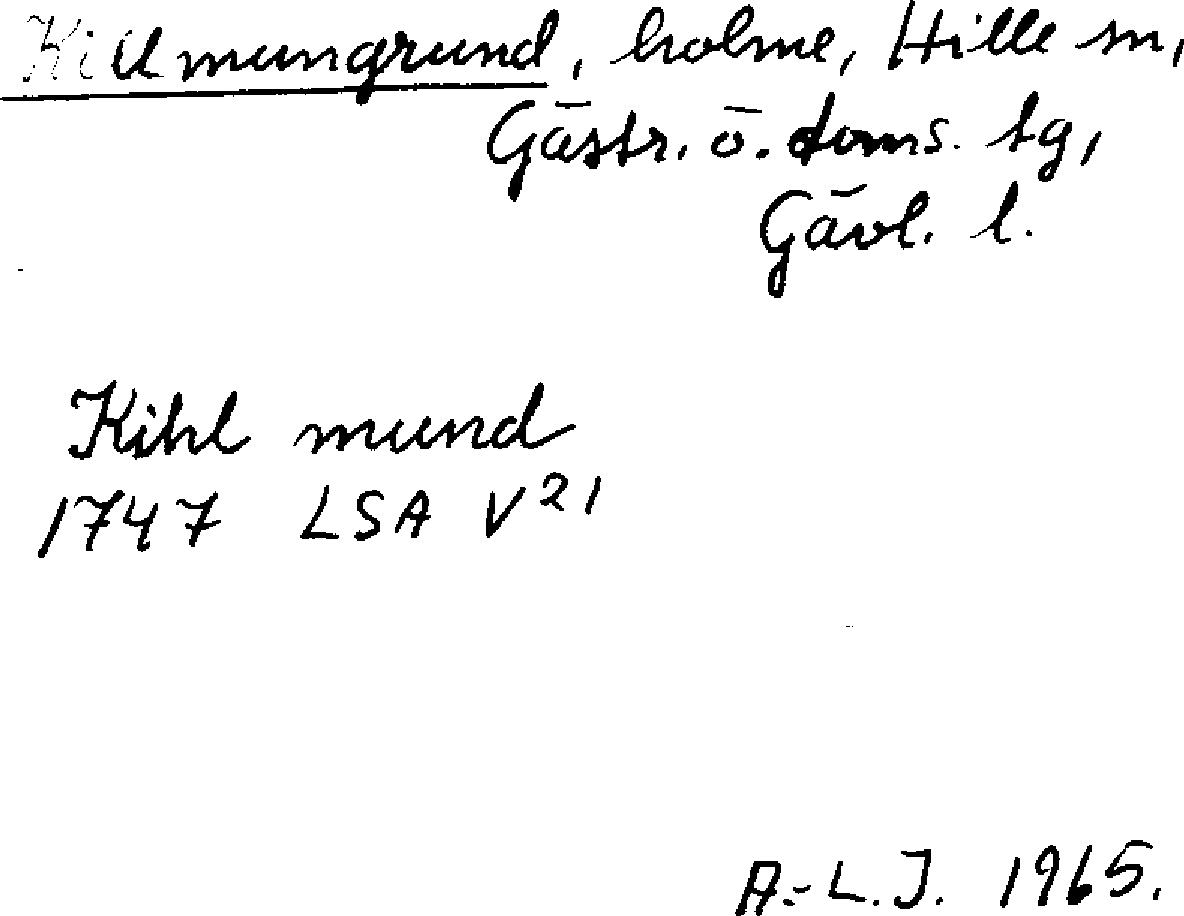 Killmungrund, holme, Hille sn,
Gästr. ö. doms. tg,
Gävl. l.
Kihl mund
1747 LSA V²1
A.-L.J. 1965.